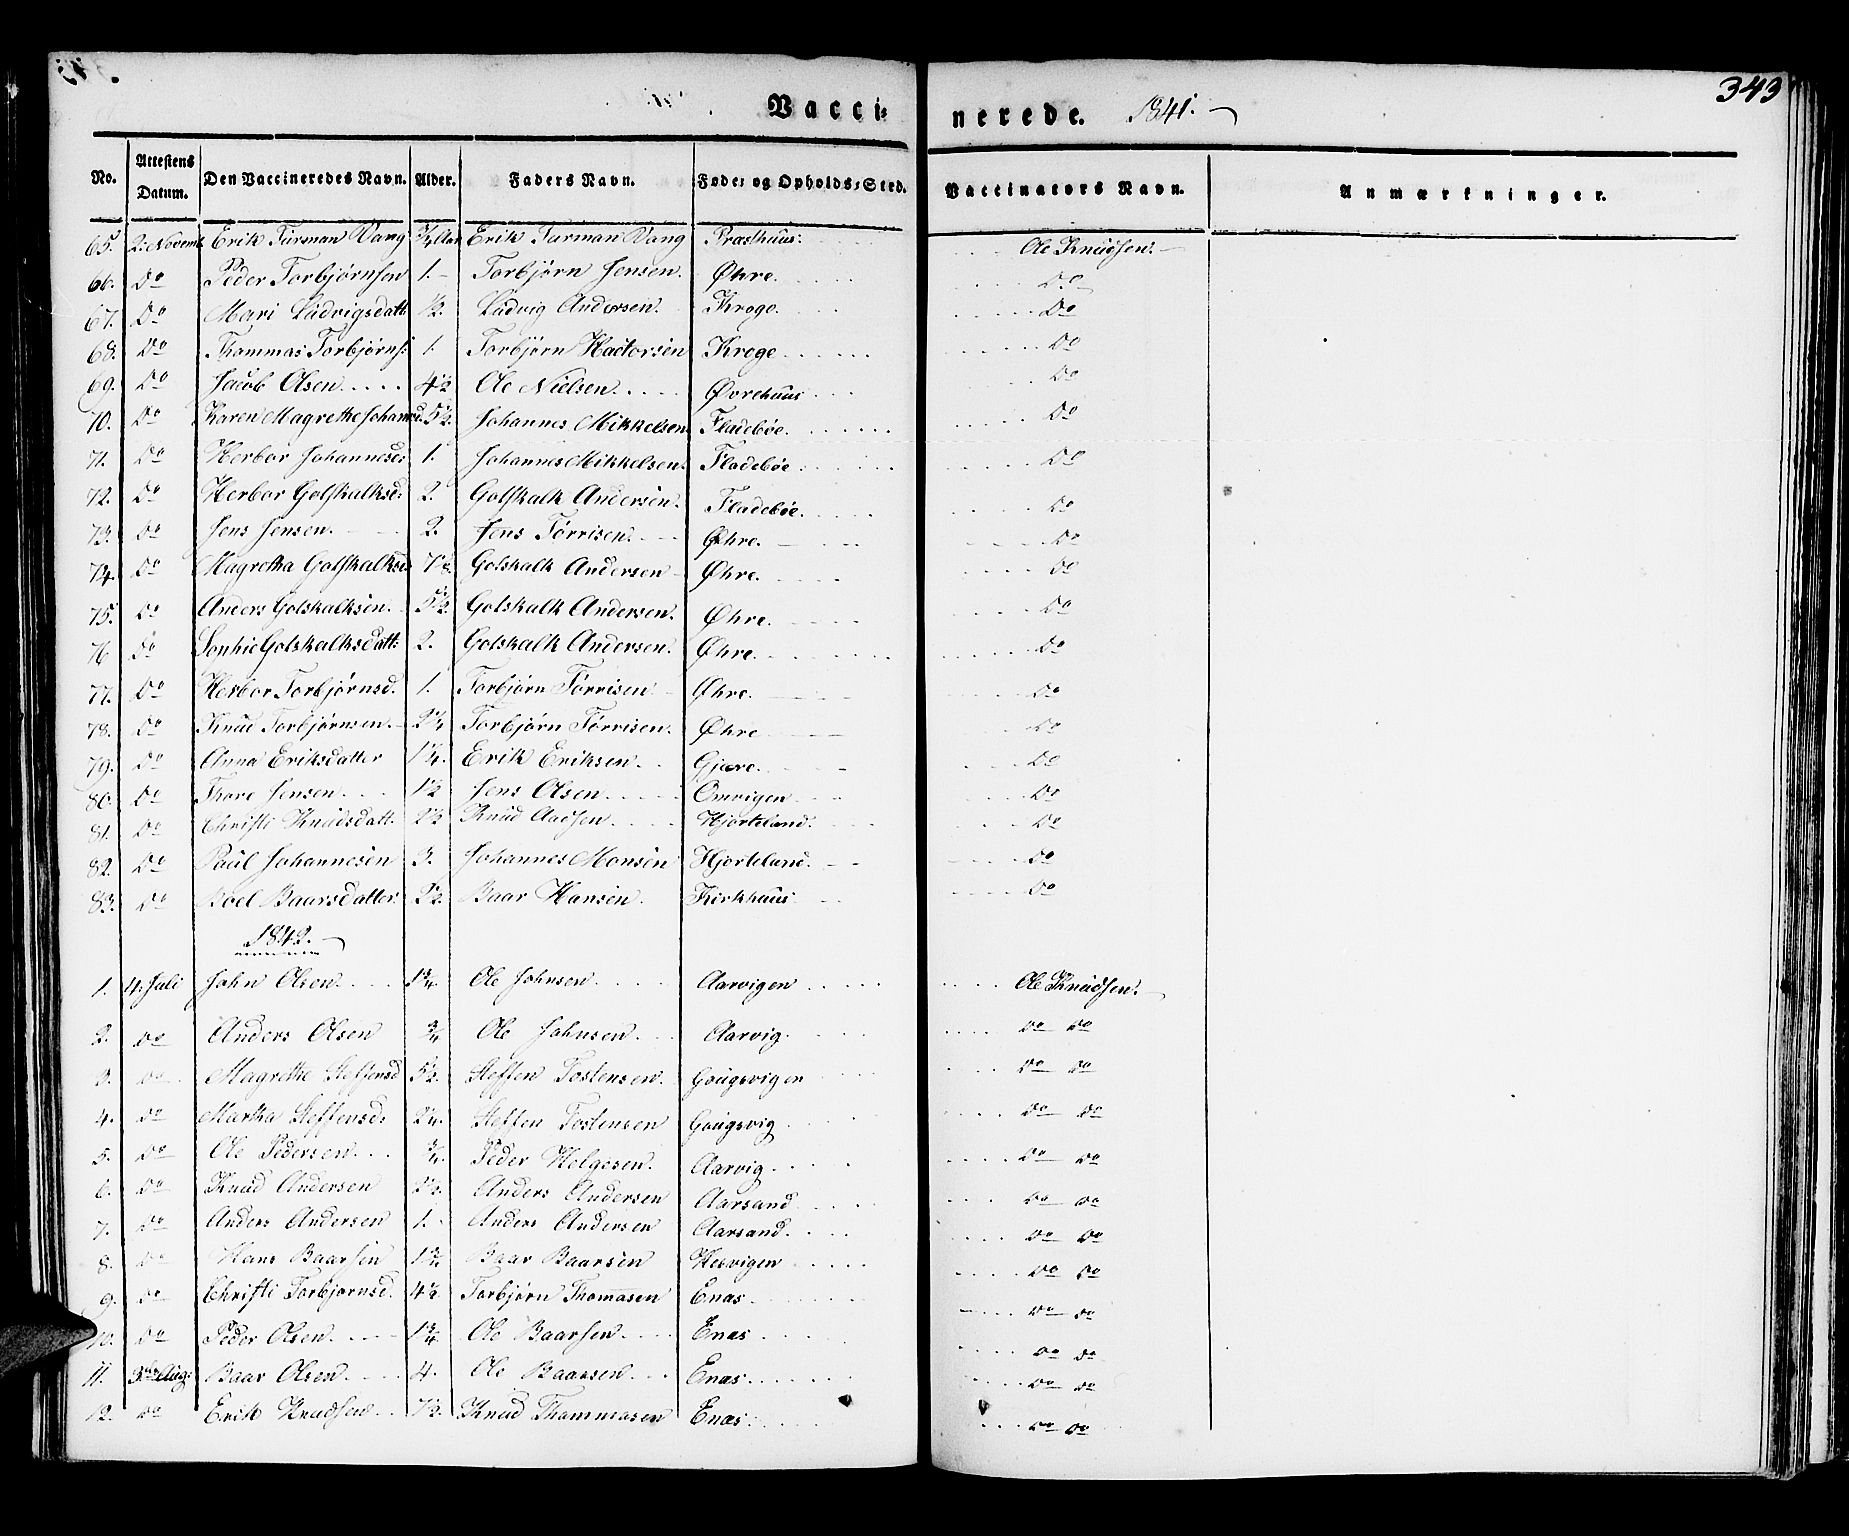 343
Vacci- nerede. 1841.
No. Attestens Datum. Den Vaccineredes Navn. Alder. Faders Navn. Føde- og Opholds-Sted. Vaccinators Navn. Anmærkninger.
65. 2. Novemb. Erik Turman Vang Erik Turman Vang Præsthuus. Ole Knudsen.
66. Do Peder Torbjørnsen 1. Torbjørn Jensen. Øhre. Do
67. Do Mari Ludvigsdatt 1/2. Ludvig Andersen. Kroge. Do
68. Do Thommas Torbjørns: 1. Torbjørn Hactorsen Kroge Do
69. Do Jacob Olsen. 4 1/2 Ole Nielsen Øvrehuus Do
70. Do Karen Magrethe Johannsd. 5 1/2. Johannes Mikkelsen. Fladebøe. Do
71. Do Herbor Johannesd: 1. Johannes Mikkelsen. Fladebøe Do
72. Do Herbor Golskalksd: 2. Golskalk Andersen. Fladebøe. Do
73. Do Jens Jensen. 2. Jens Tørrisen. Øhre. Do
74. Do Magretha Golskalksd 7 1/2. Golskalk Andersen Øhre. Do
75. Do Anders Golskalksen. 5 1/2. Golskalk Andersen. Øhre. Do
76 Do Sophie Golskalksdatt: 2. Golskalk Andersen. Øhre. Do
77. Do Herbor Torbjørnsd. 1. Torbjørn Tørrisen Øhre. Do
78. Do Knud Torbjørnsen. 2 1/4 Torbjørn Tørrisen. Øhre Do
79. Do Anna Eriksdatter 1 1/4. Erik Eriksen. Gjære. Do
80. Do Thore Jensen. 1 1/2 Jens Olsen Omvigen Do
81. Do Christi Knudsdatt. 2 1/2 Knud Aadsen Hjorteland. Do
82. Do Paul Johannesen 3. Johannes Monsen Hjorteland. Do
83. Do Boel Baarsdatter. 2 1/2. Baar Hansen. Kirkhuus Do
1842.
1. 4. Juli John Olsen. 1 3/4. Ole Johnsen Aarvigen Ole Knudsen.
2. Do Anders Olsen 3/4 Ole Johnsen. Aarvig. Do Do
3. Do Magrethe Steffensd 5 1/2. Steffen Tostensen. Gougsvigen Do Do
4. Do Martha Steffensd: 2 1/4. Steffen Tostensen Gougsvig Do Do
5. Do Ole Pedersen. 3/4. Peder Helgesen. Aarvig Do Do
6. Do Knud Andersen 2 1/2. Anders Andersen Aarsand Do Do
7. Do Anders Andersen 1. Anders Andersen Aarsand. Do Do
8. Do Hans Baarsen 1 3/4. Baar Baarsen Hesvigen Do Do
9. Do Christi Torbjørnsd. 4 1/2. Torbjørn Thomasen Enæs. Do Do
10. Do Peder Olsen. 1 3/4 Ole Baarsen. Enæs Do Do
11. 3die Aug: Baar Olsen. 4. Ole Baarsen. Enæs. Do Do
12. Do Erik Knudsen 7 1/2. Knud Thommasen Enæs. Do Do